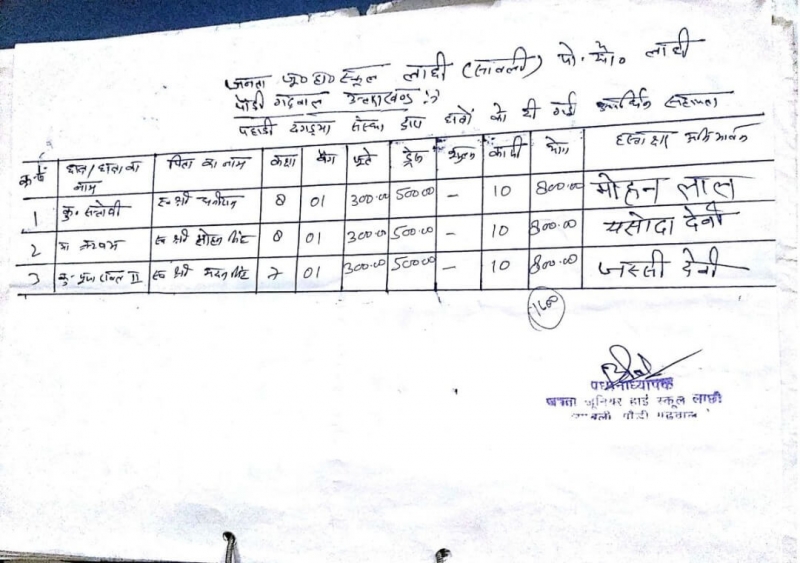 जनता जू० हा० स्कूल लाछी (सावली) पो. ओ० लाछी
पौडी गढवाल उत्तराखण्ड :-
पहाडी दगड्या संस्था द्वारा छात्रों को दी गई आर्थिक सहायता
क्र.सं छात्र/छात्रा का नाम पिता का नाम कक्षा बैग जूते ड्रेस शुल्क कापी योग हस्ताक्षर अभिभावक
1 कु. सन्तोषी स्व श्री 8 01 300.00 500.00 – 10 800.00 मोहन लाल
2 स्व श्री मोहन सिंह 8 01 300.00 500.00 – 10 800.00 यसोदा देवी
3 कु. II स्व श्री सिंह 7 01 300.00 500.00 – 10 800.00 जस्सी देवी
प्रधानाध्यापक
जनता जूनियर हाई स्कूल लाछी
सावली पौडी गढवाल